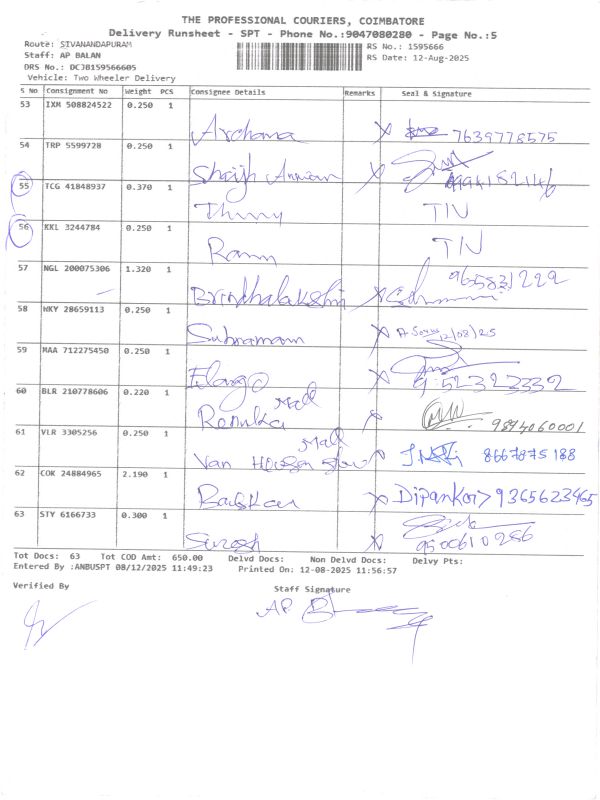 THE PROFESSIONAL COURIERS, COIMBATORE
Delivery Runsheet - SPT - Phone No.:9047080280 - Page No.:5
Route: SIVANANDAPURAM RS No.: 1595666
Staff: AP BALAN RS Date: 12-Aug-2025
DRS No.: DCJB159566605
Vehicle: Two Wheeler Delivery
S No Consignment No Weight PCS Consignee Details Remarks Seal & Signature
53 IXM 508824522 0.250 1
Archana X 7639778575
54 TRP 5599728 0.250 1
Shaijh X
55 TCG 41848937 0.370 1
TIV
56 KKL 3244784 0.250 1
Ramm TIV
57 NGL 200075306 1.320 1
Brindhalakshi X 9655831222
58 HKY 28659113 0.250 1
Subramani X 12/08/25
59 MAA 712275450 0.250 1
Elango X
60 BLR 210778606 0.220 1
Renuka Mall X 9874060001
61 VLR 3305256 0.250 1
Mall
Van Heusen X 8667875188
62 COK 24884965 2.190 1
Baskar X Dipankar 9365623465
63 STY 6166733 0.300 1
Suresh X 9500610256
Tot Docs: 63 Tot COD Amt: 650.00 Delvd Docs: Non Delvd Docs: Delvy Pts:
Entered By :ANBUSPT 08/12/2025 11:49:23 Printed On: 12-08-2025 11:56:57
Verified By Staff Signature
AP